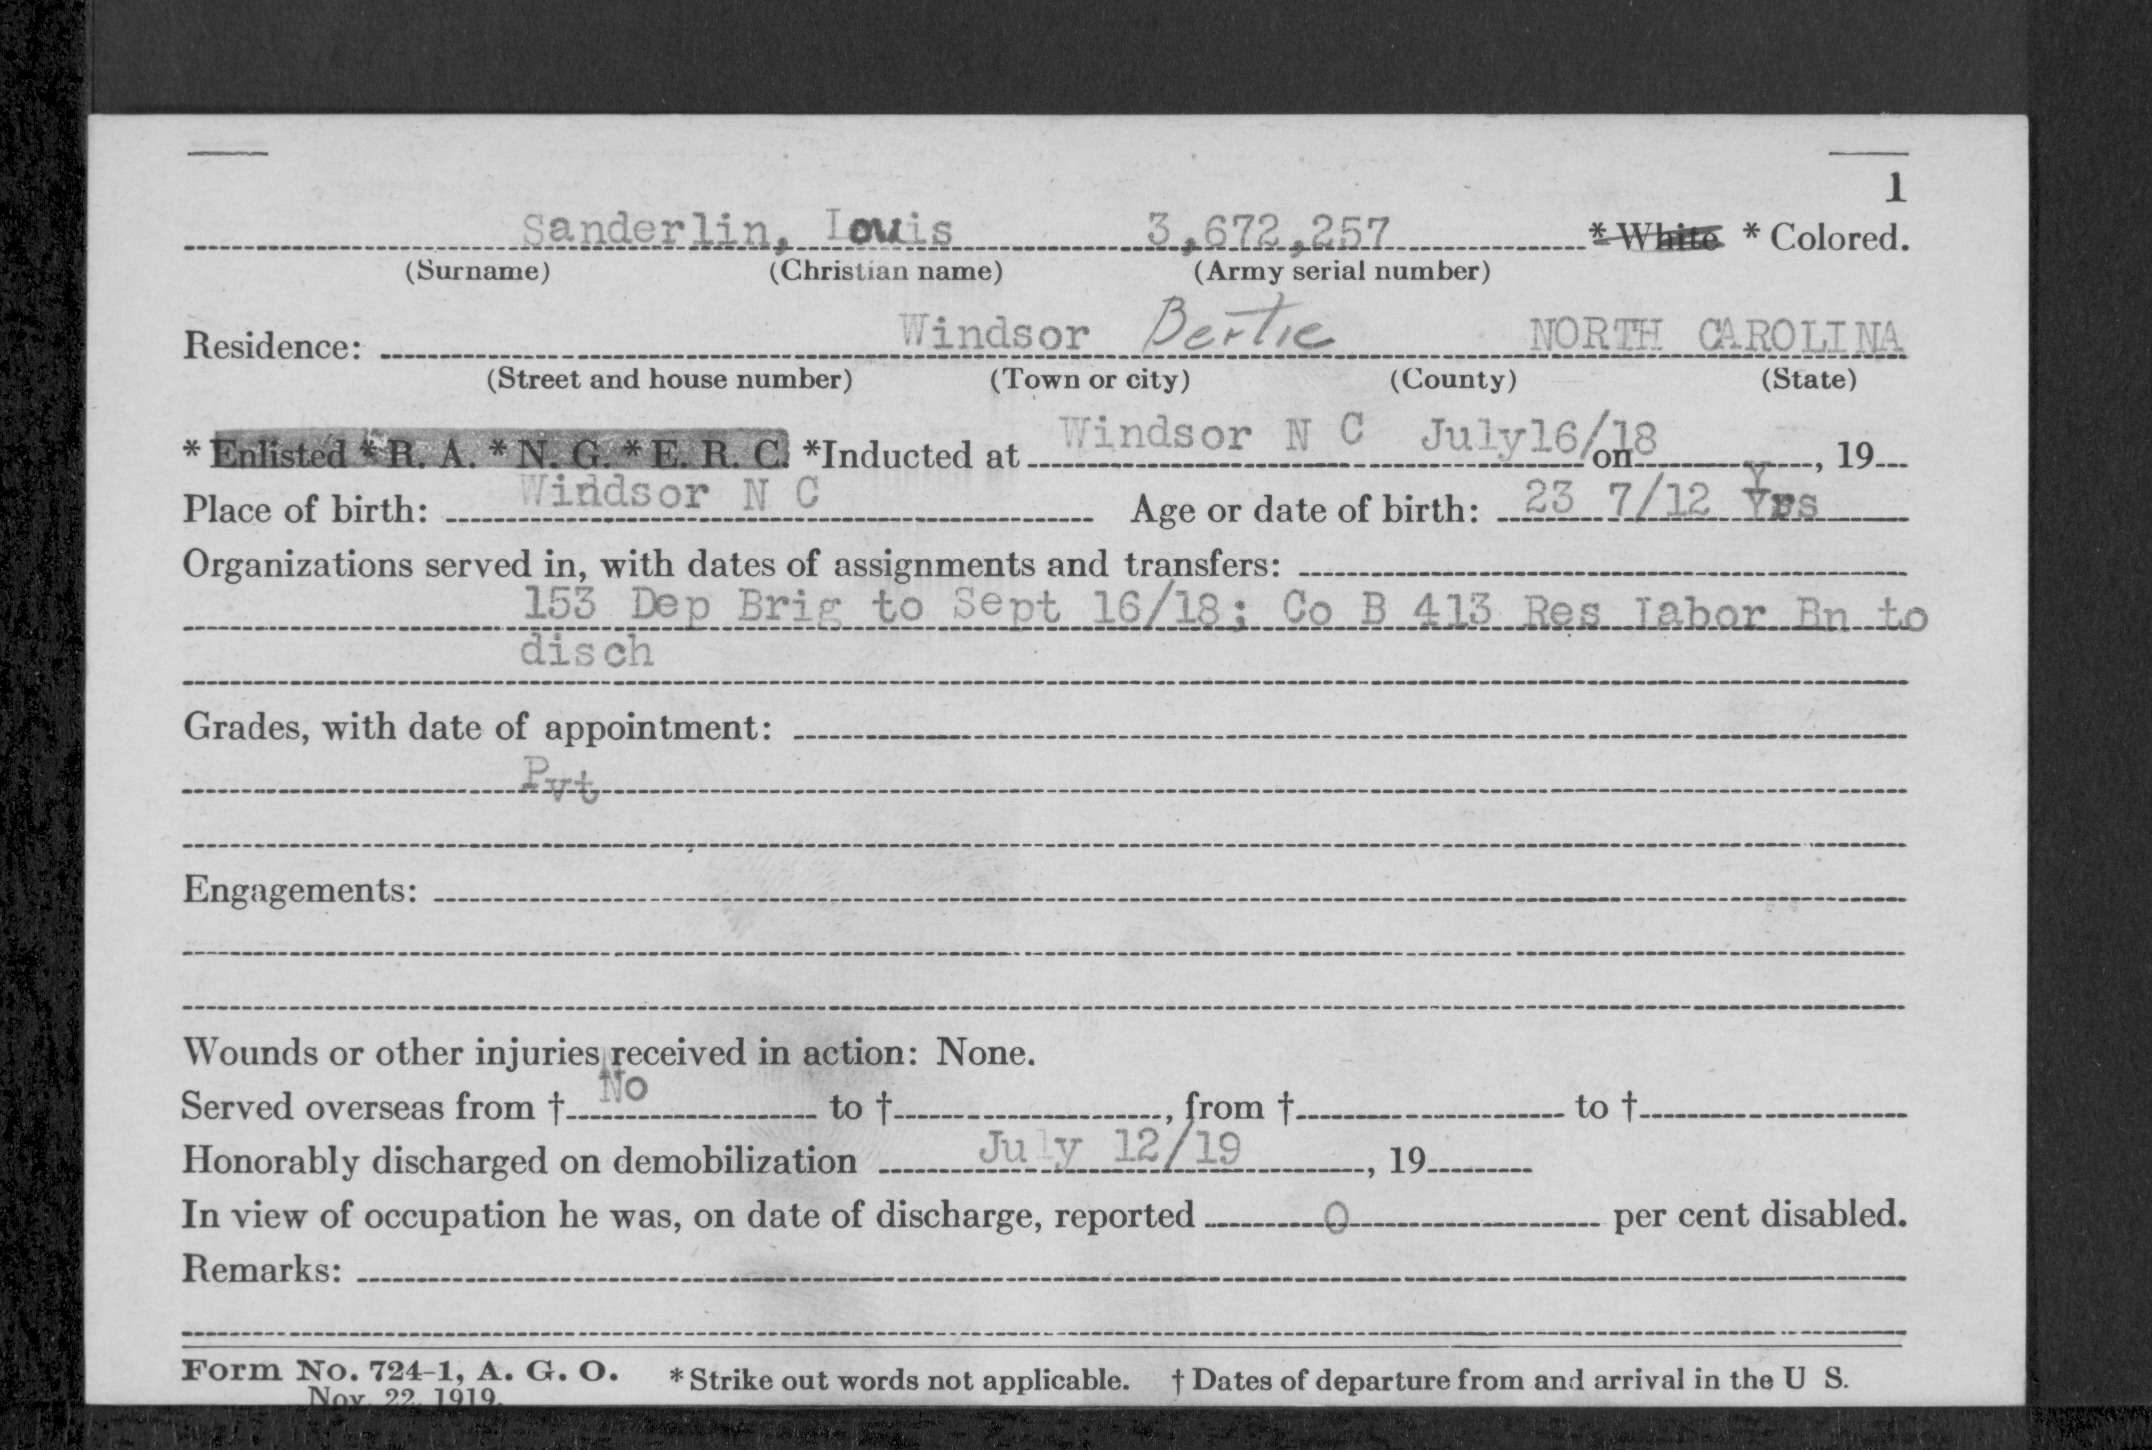 1
Sanderlin, Louis 3,672,257 * White * Colored.
(Surname) (Christian name) (Army serial number)
Residence: Windsor Bertie NORTH CAROLINA
(Street and house number) (Town or city) (County) (State)
* Enlisted * R. A. * N. G. * E. R. C. *Inducted at Windsor N C July16/18 on , 19
Place of birth: Windsor N C Age or date of birth: 23 7/12 Yrs
Organizations served in, with dates of assignments and transfers:
153 Dep Brig to Sept 16/18; Co B 413 Res Labor Bn to
disch
Grades, with date of appointment:
Pvt
Engagements:
Wounds or other injuries received in action: None.
Served overseas from † No to †, from † to †
Honorably discharged on demobilization July 12/19, 19
In view of occupation he was, on date of discharge, reported 0 per cent disabled.
Remarks:
Form No. 724-1, A. G. O. * Strike out words not applicable. † Dates of departure from and arrival in the U S.
Nov. 22, 1919.